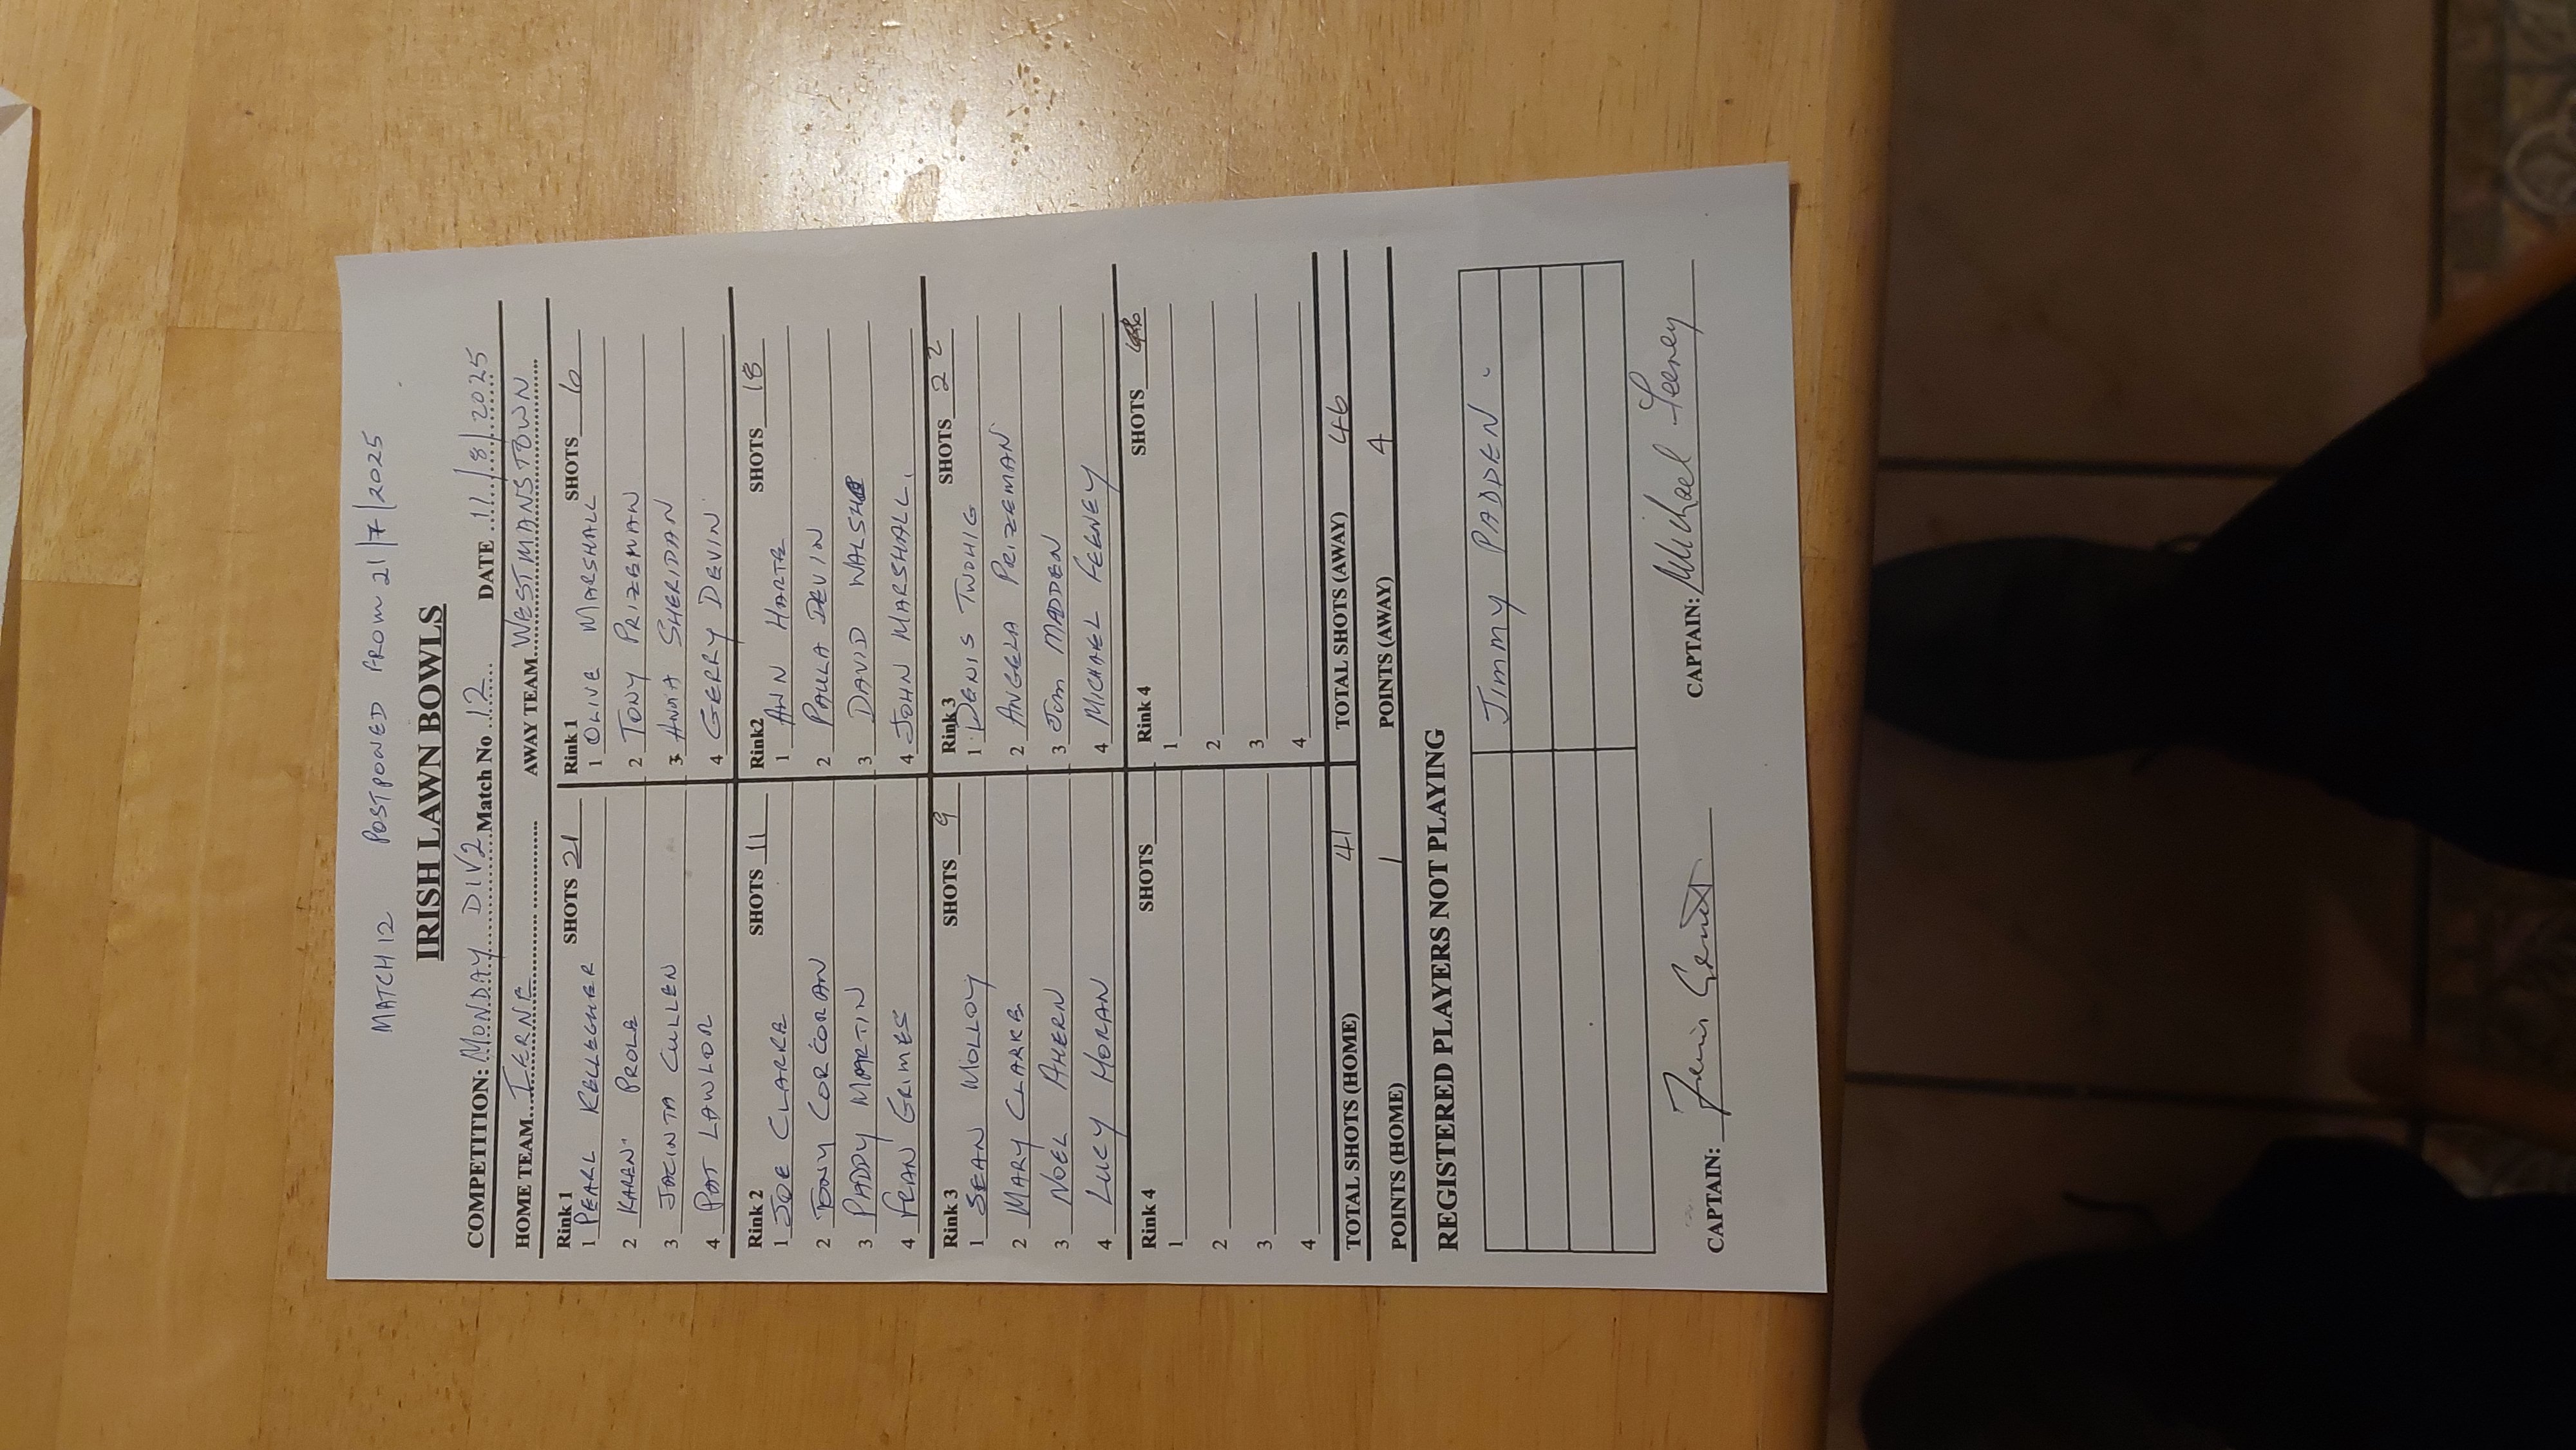 MATCH 12 POSTPONED FROM 21/7/2025
IRISH LAWN BOWLS
COMPETITION: MONDAY DIV2 Match No 12 DATE 11/8/2025
HOME TEAM IERNE AWAY TEAM WESTMANSTOWN
Rink 1 SHOTS 21 Rink 1 SHOTS 6
1 PEARL KELLEGHER 1 OLIVE MARSHALL
2 KAREN PROLE 2 TONY PRIZEMAN
3 JACINTA CULLEN 3 ANNA SHERIDAN
4 PAT LAWLOR 4 GERRY DEVIN
Rink 2 SHOTS 11 Rink2 SHOTS 18
1 JOE CLARKE 1 ANN HARTE
2 TONY CORCORAN 2 PAULA DEVIN
3 PADDY MARTIN 3 DAVID WALSH
4 FRAN GRIMES 4 JOHN MARSHALL.
Rink 3 SHOTS 9 Rink 3 SHOTS 22
1 SEAN MOLLOY 1 DENIS TWOHIG
2 MARY CLARKE 2 ANGELA PRIZEMAN
3 NOEL AHERN 3 TOM MADDEN
4 LUCY MORAN 4 MICHAEL FEENEY
Rink 4 SHOTS Rink 4 SHOTS
1 1
2 2
3 3
4 4
TOTAL SHOTS (HOME) 41 TOTAL SHOTS (AWAY) 46
POINTS (HOME) 1 POINTS (AWAY) 4
REGISTERED PLAYERS NOT PLAYING
JIMMY PADDEN.
CAPTAIN: CAPTAIN: Michael Feeney